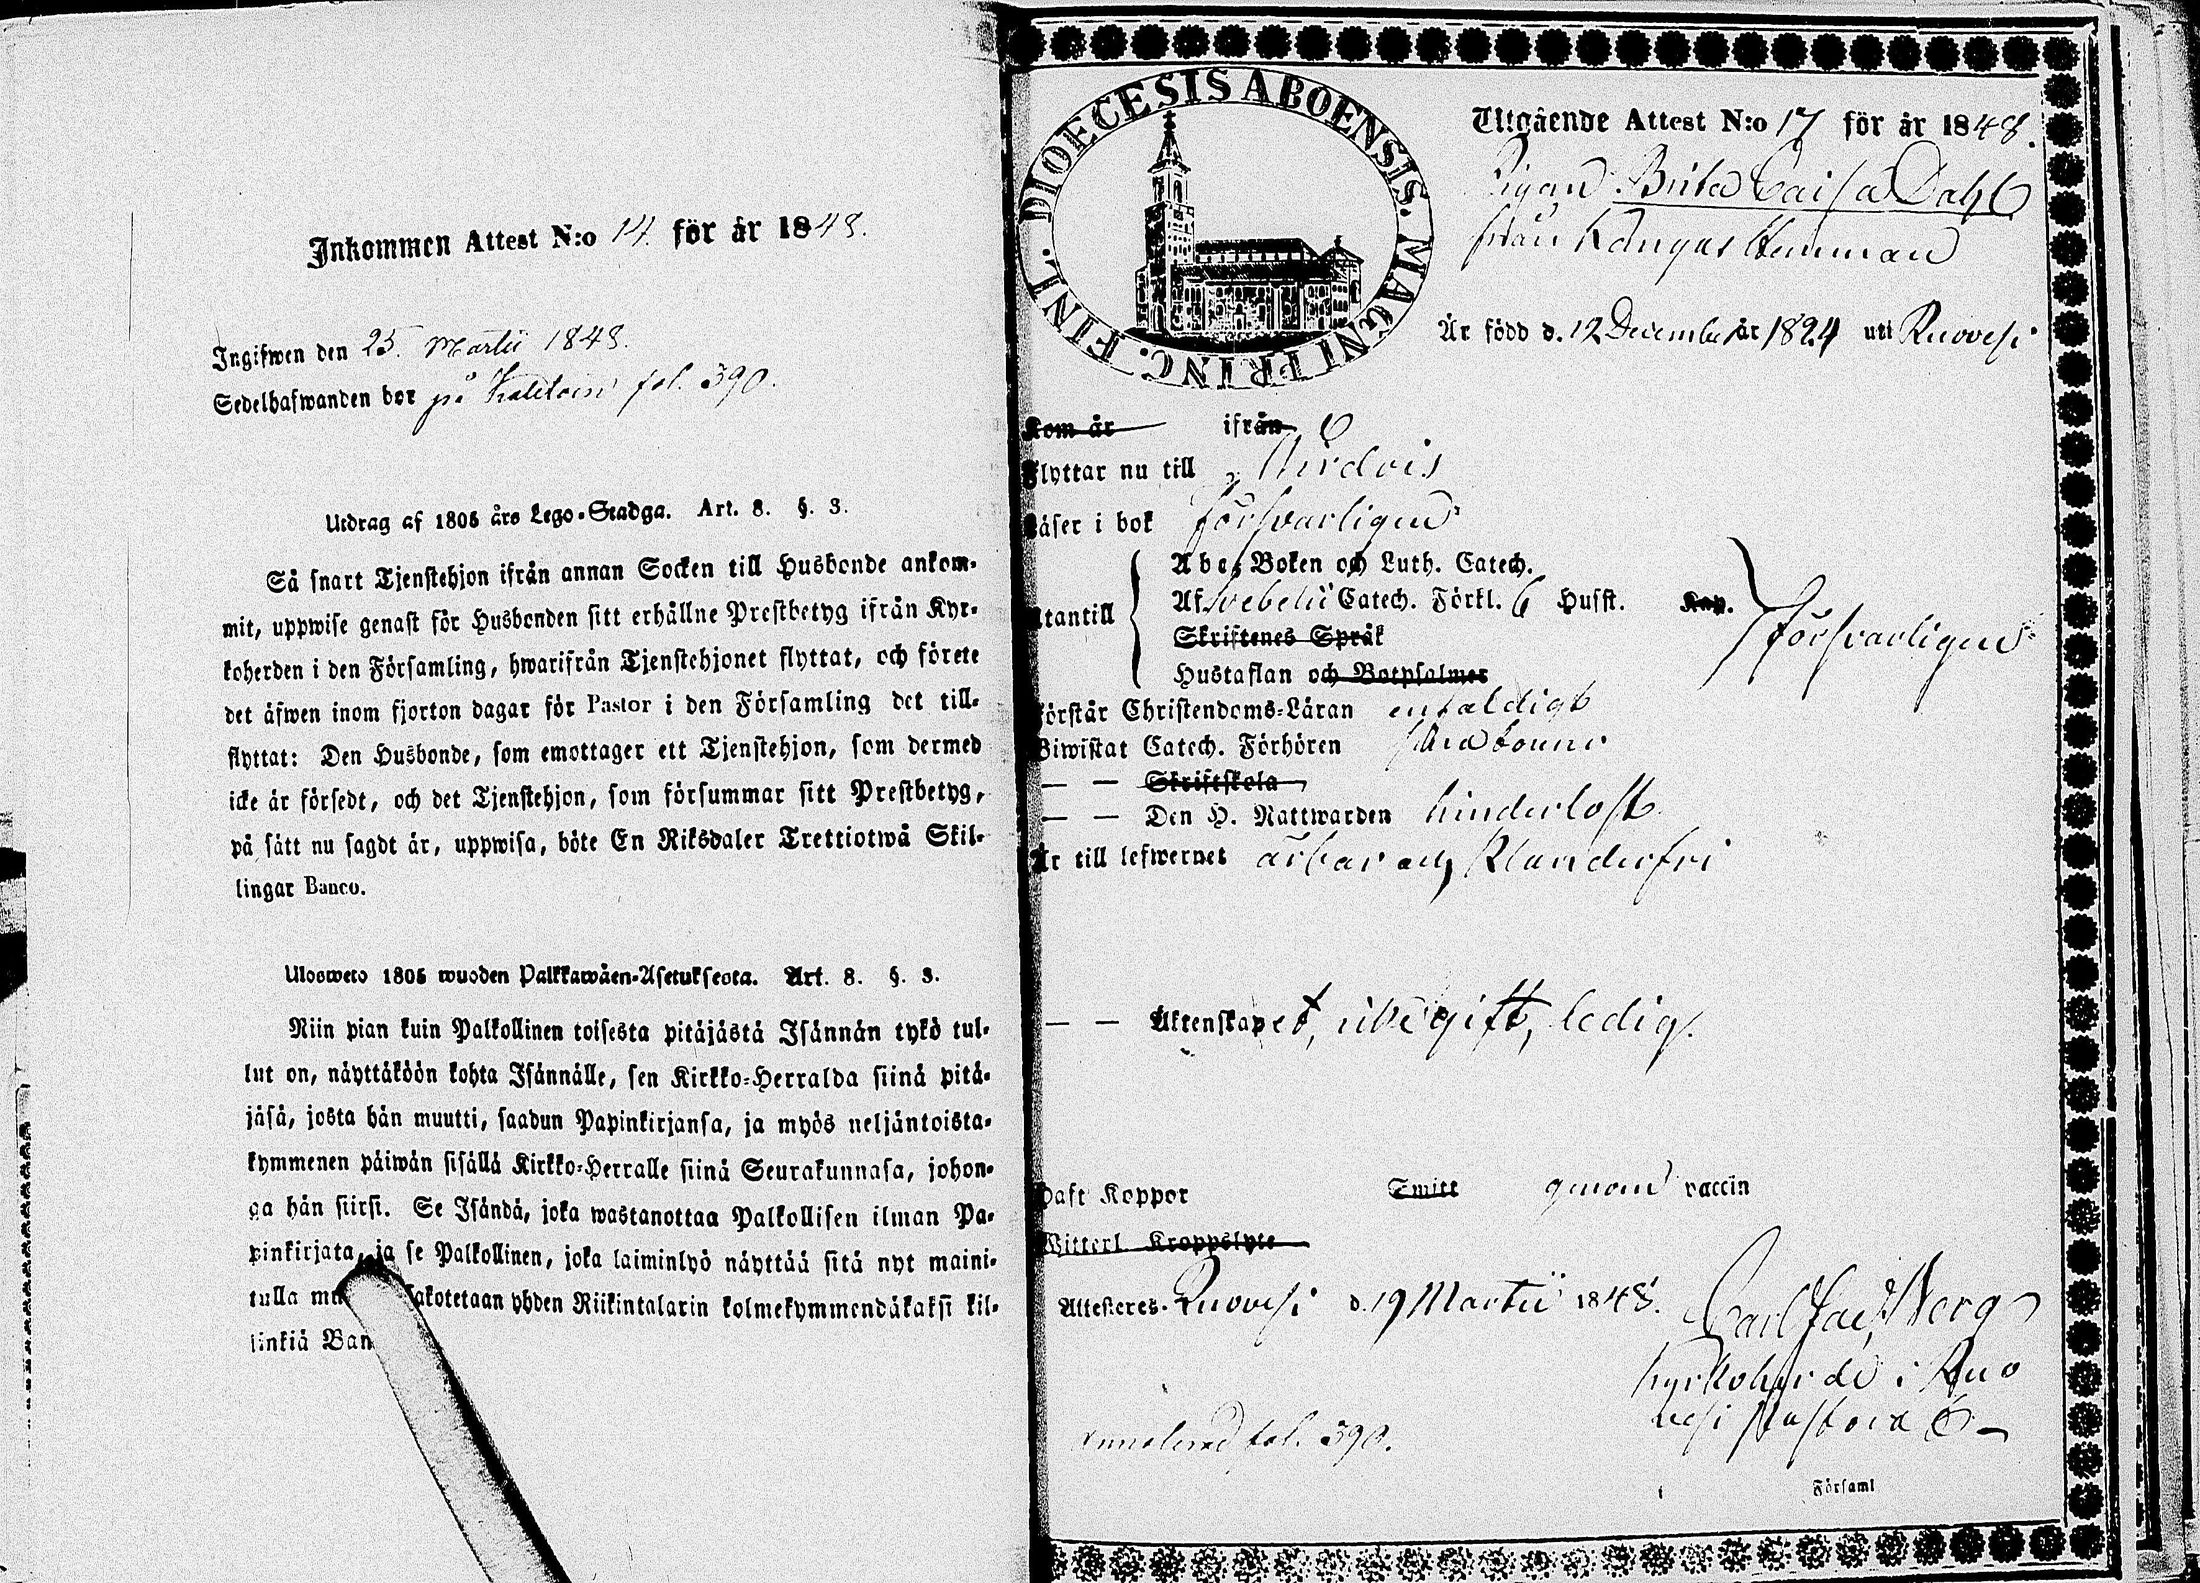 Inkommen Attest N:o 14. för år 1848.
Ingifwen den 25. Martii 1848.
Sedelhafwanden bor på fol. 390.
Utdrag af 1805 års Lego-Stadga. Art. 8. §. 3.
Så snart Tjenstehjon ifrån annan Socken till Husbonde ankom-
mit, uppwise genast för Husbonden sitt erhållne Prestbetyg ifrån Kyr-
koherden i den Församling, hwarifrån Tjenstehjonet flyttat, och förete
det äfwen inom fjorton dagar för Pastor i den Församling det till-
flyttat: Den Husbonde, som emottager ett Tjenstehjon, som dermed
icke är försedt, och det Tjenstehjon, som försummar sitt Prestbetyg,
på sätt nu sagdt är, uppwisa, böte En Riksdaler Trettiotwå Skil-
lingar Banco.
Ulosweto 1805 wuoden Palkkawäen-Asetuksesta. Art. 8. §. 3.
Niin pian kuin Palkollinen toisesta pitäjästä Isännän tykö tul-
lut on, näyttäköön kohta Isännälle, sen Kirkko-Herralda siinä pitä-
jäsä, josta hän muutti, saadun Papinkirjansa, ja myös neljäntoista-
kymmenen päiwän sisällä Kirkko-Herralle siinä Seurakunnasa, johon-
ga hän siirsi. Se Isändä, joka wastanottaa Palkollisen ilman Pa-
pinkirjata, ja se Palkollinen, joka laiminlyö näyttää sitä nyt maini-
tulla mu sakotetaan yhden Riikintalarin kolmekymmendäkaksi kil-
linkiä Ban
DIOECESIS ABOENSIS. MAGNI PRINC. FINL.
Utgående Attest N:o 17 för år 1848.
Pigan Brita Caisa Dahl
från Kangas Hemman
Är född d. 12 December år 1824 uti Ruovesi
Kom år ifrån
Flyttar nu till Wirdois
Läser i bok försvarligen
Utantill
Abc-Boken och Luth. Catech.
Af Svebelii Catech. Förkl. 6 Husst. Kap.
Skriftenes Språk
Hustaflan och Botpsalmer
försvarligen
Förstår Christendoms-Läran enfaldigt
Biwistat Catech. Förhören
— — Skriftskola
— — Den H. Nattwarden hinderlöst.
Är till lefwernet ärbar och klanderfri
— — Äktenskapet, ledig.
Haft Koppor Smitt genom vaccin
Witterl. Kroppslyte
Attesteres. Ruovesi d. 19 Martii 1848.
Kyrkoherde i Ruo
vesi Pastorat
fol. 390.
Församl